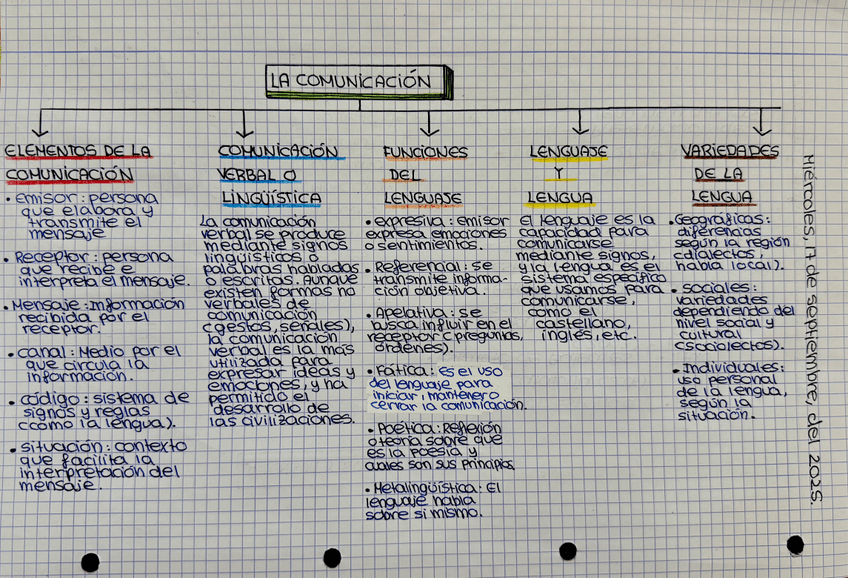 LA COMUNICACIÓN
ELEMENTOS DE LA
COMUNICACIÓN
• emisor: persona
que elabora y
transmite el
mensaje
• Receptor: persona
que recibe e
interpreta el mensaje.
• Mensaje: Información
recibida por el
receptor.
• canal: Medio por el
que circula la
información.
• código: sistema de
signos y reglas
(como la lengua).
• situación: contexto
que facilita la
interpretación del
mensaje.
COMUNICACIÓN
VERBAL O
LINGÜÍSTICA
La comunicación
verbal se produce
mediante signos
lingüísticos o
palabras habladas
o escritas. Aunque
existen formas no
verbales de
comunicación
(gestos, señales),
la comunicación
verbal es la más
utilizada para
expresar ideas y
emociones, y ha
permitido el
desarrollo de
las civilizaciones.
FUNCIONES
DEL
LENGUAJE
• expresiva: emisor
expresa emociones
o sentimientos.
• Referencial: se
transmite informa-
ción objetiva.
• Apelativa: se
busca influir en el
receptor (preguntas,
órdenes).
• Fática: Es el uso
del lenguaje para
iniciar, mantener o
cerrar la comunicación.
• Poética: Reflexión
o teoría sobre que
es la poesía y
cuales son sus principios.
• Metalingüística: El
lenguaje habla
sobre si mismo.
LENGUAJE
Y
LENGUA
el lenguaje es la
capacidad para
comunicarse
mediante signos,
y la lengua es el
sistema específico
que usamos para
comunicarse,
como el
castellano,
inglés, etc.
VARIEDADES
DE LA
LENGUA
• Geográficas:
diferencias
según la región
(dialectos,
habla local).
• sociales:
variedades
dependiendo del
nivel social y
cultural
(sociolectos).
• Individuales:
uso personal
de la lengua,
según la
situación.
Miércoles, 17 de septiembre, del 2025.